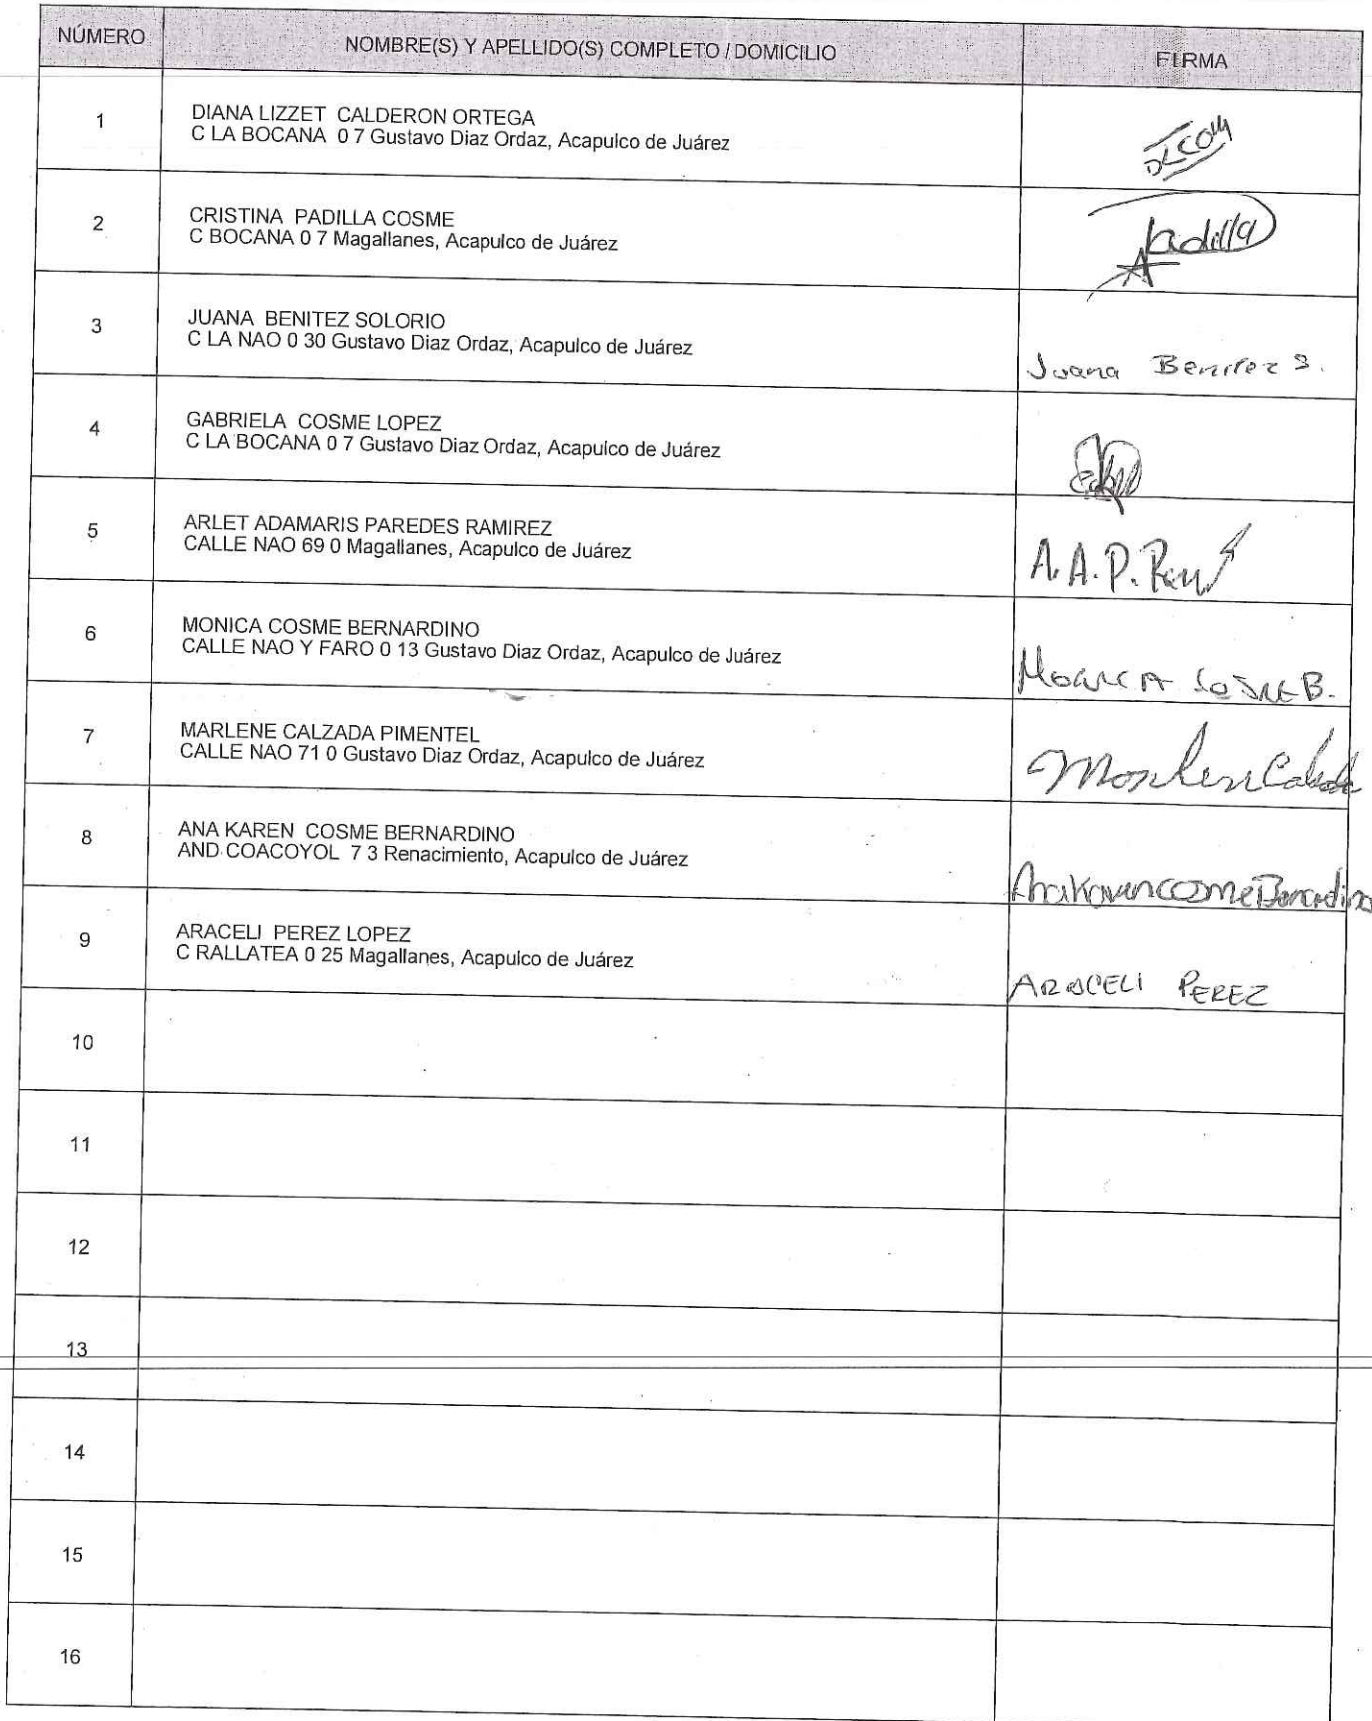 NÚMERO NOMBRE(S) Y APELLIDO(S) COMPLETO / DOMICILIO FIRMA
1 DIANA LIZZET CALDERON ORTEGA
C LA BOCANA 0 7 Gustavo Diaz Ordaz, Acapulco de Juárez
2 CRISTINA PADILLA COSME
C BOCANA 0 7 Magallanes, Acapulco de Juárez
Padilla
3 JUANA BENITEZ SOLORIO
C LA NAO 0 30 Gustavo Diaz Ordaz, Acapulco de Juárez
Juana Benitez S.
4 GABRIELA COSME LOPEZ
C LA BOCANA 0 7 Gustavo Diaz Ordaz, Acapulco de Juárez
5 ARLET ADAMARIS PAREDES RAMIREZ
CALLE NAO 69 0 Magallanes, Acapulco de Juárez
A.A.P.
6 MONICA COSME BERNARDINO
CALLE NAO Y FARO 0 13 Gustavo Diaz Ordaz, Acapulco de Juárez
MONICA COSME B.
7 MARLENE CALZADA PIMENTEL
CALLE NAO 71 0 Gustavo Diaz Ordaz, Acapulco de Juárez
8 ANA KAREN COSME BERNARDINO
AND COACOYOL 7 3 Renacimiento, Acapulco de Juárez
Ana Karen cosme Bernardino
9 ARACELI PEREZ LOPEZ
C RALLATEA 0 25 Magallanes, Acapulco de Juárez
ARACELI PEREZ
10
11
12
13
14
15
16